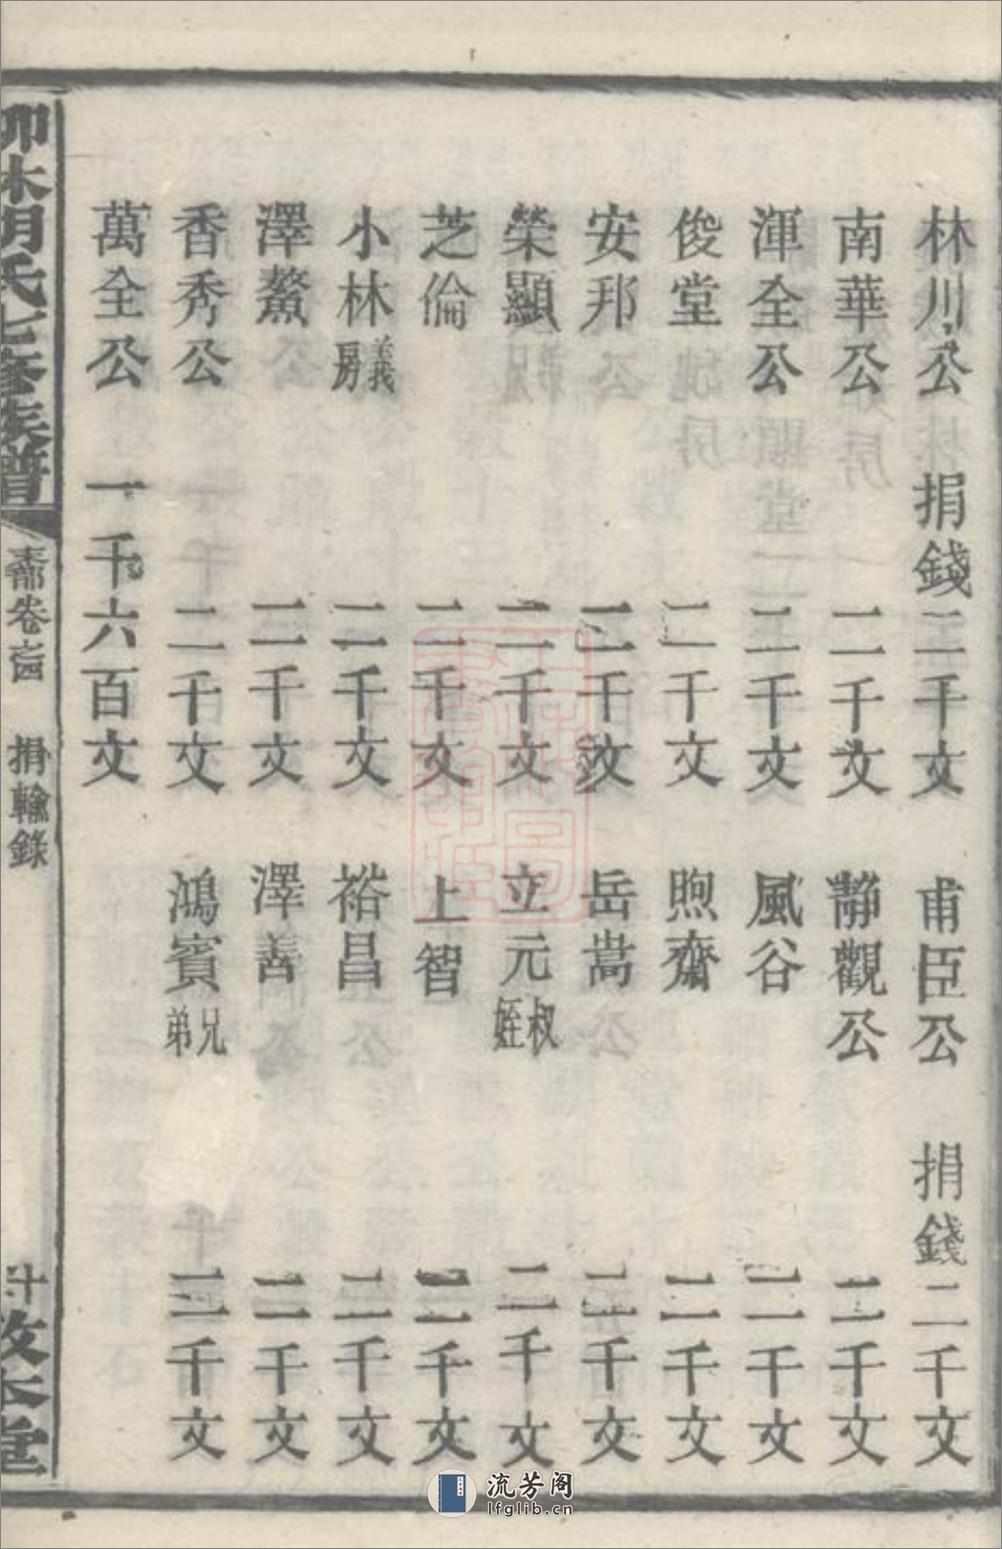 林川公 捐錢二千文 甫臣公 捐錢二千文
南華公 二千文 靜觀公 二千文
渾全公 二千文 風谷 二千文
俊堂 二千文 煦齋 二千文
安邦 二千文 岳嵩 二千文
榮顯 二千文 立元叔姪 二千文
芝倫 二千文 上智 二千文
小林義房 二千文 裕昌 二千文
澤鰲 二千文 澤善 二千文
香秀公 二千文 鴻賓兄弟 二千文
萬全公 一千六百文
氏七修族譜 卷 捐輸錄
流芳阁
lfglib.cn